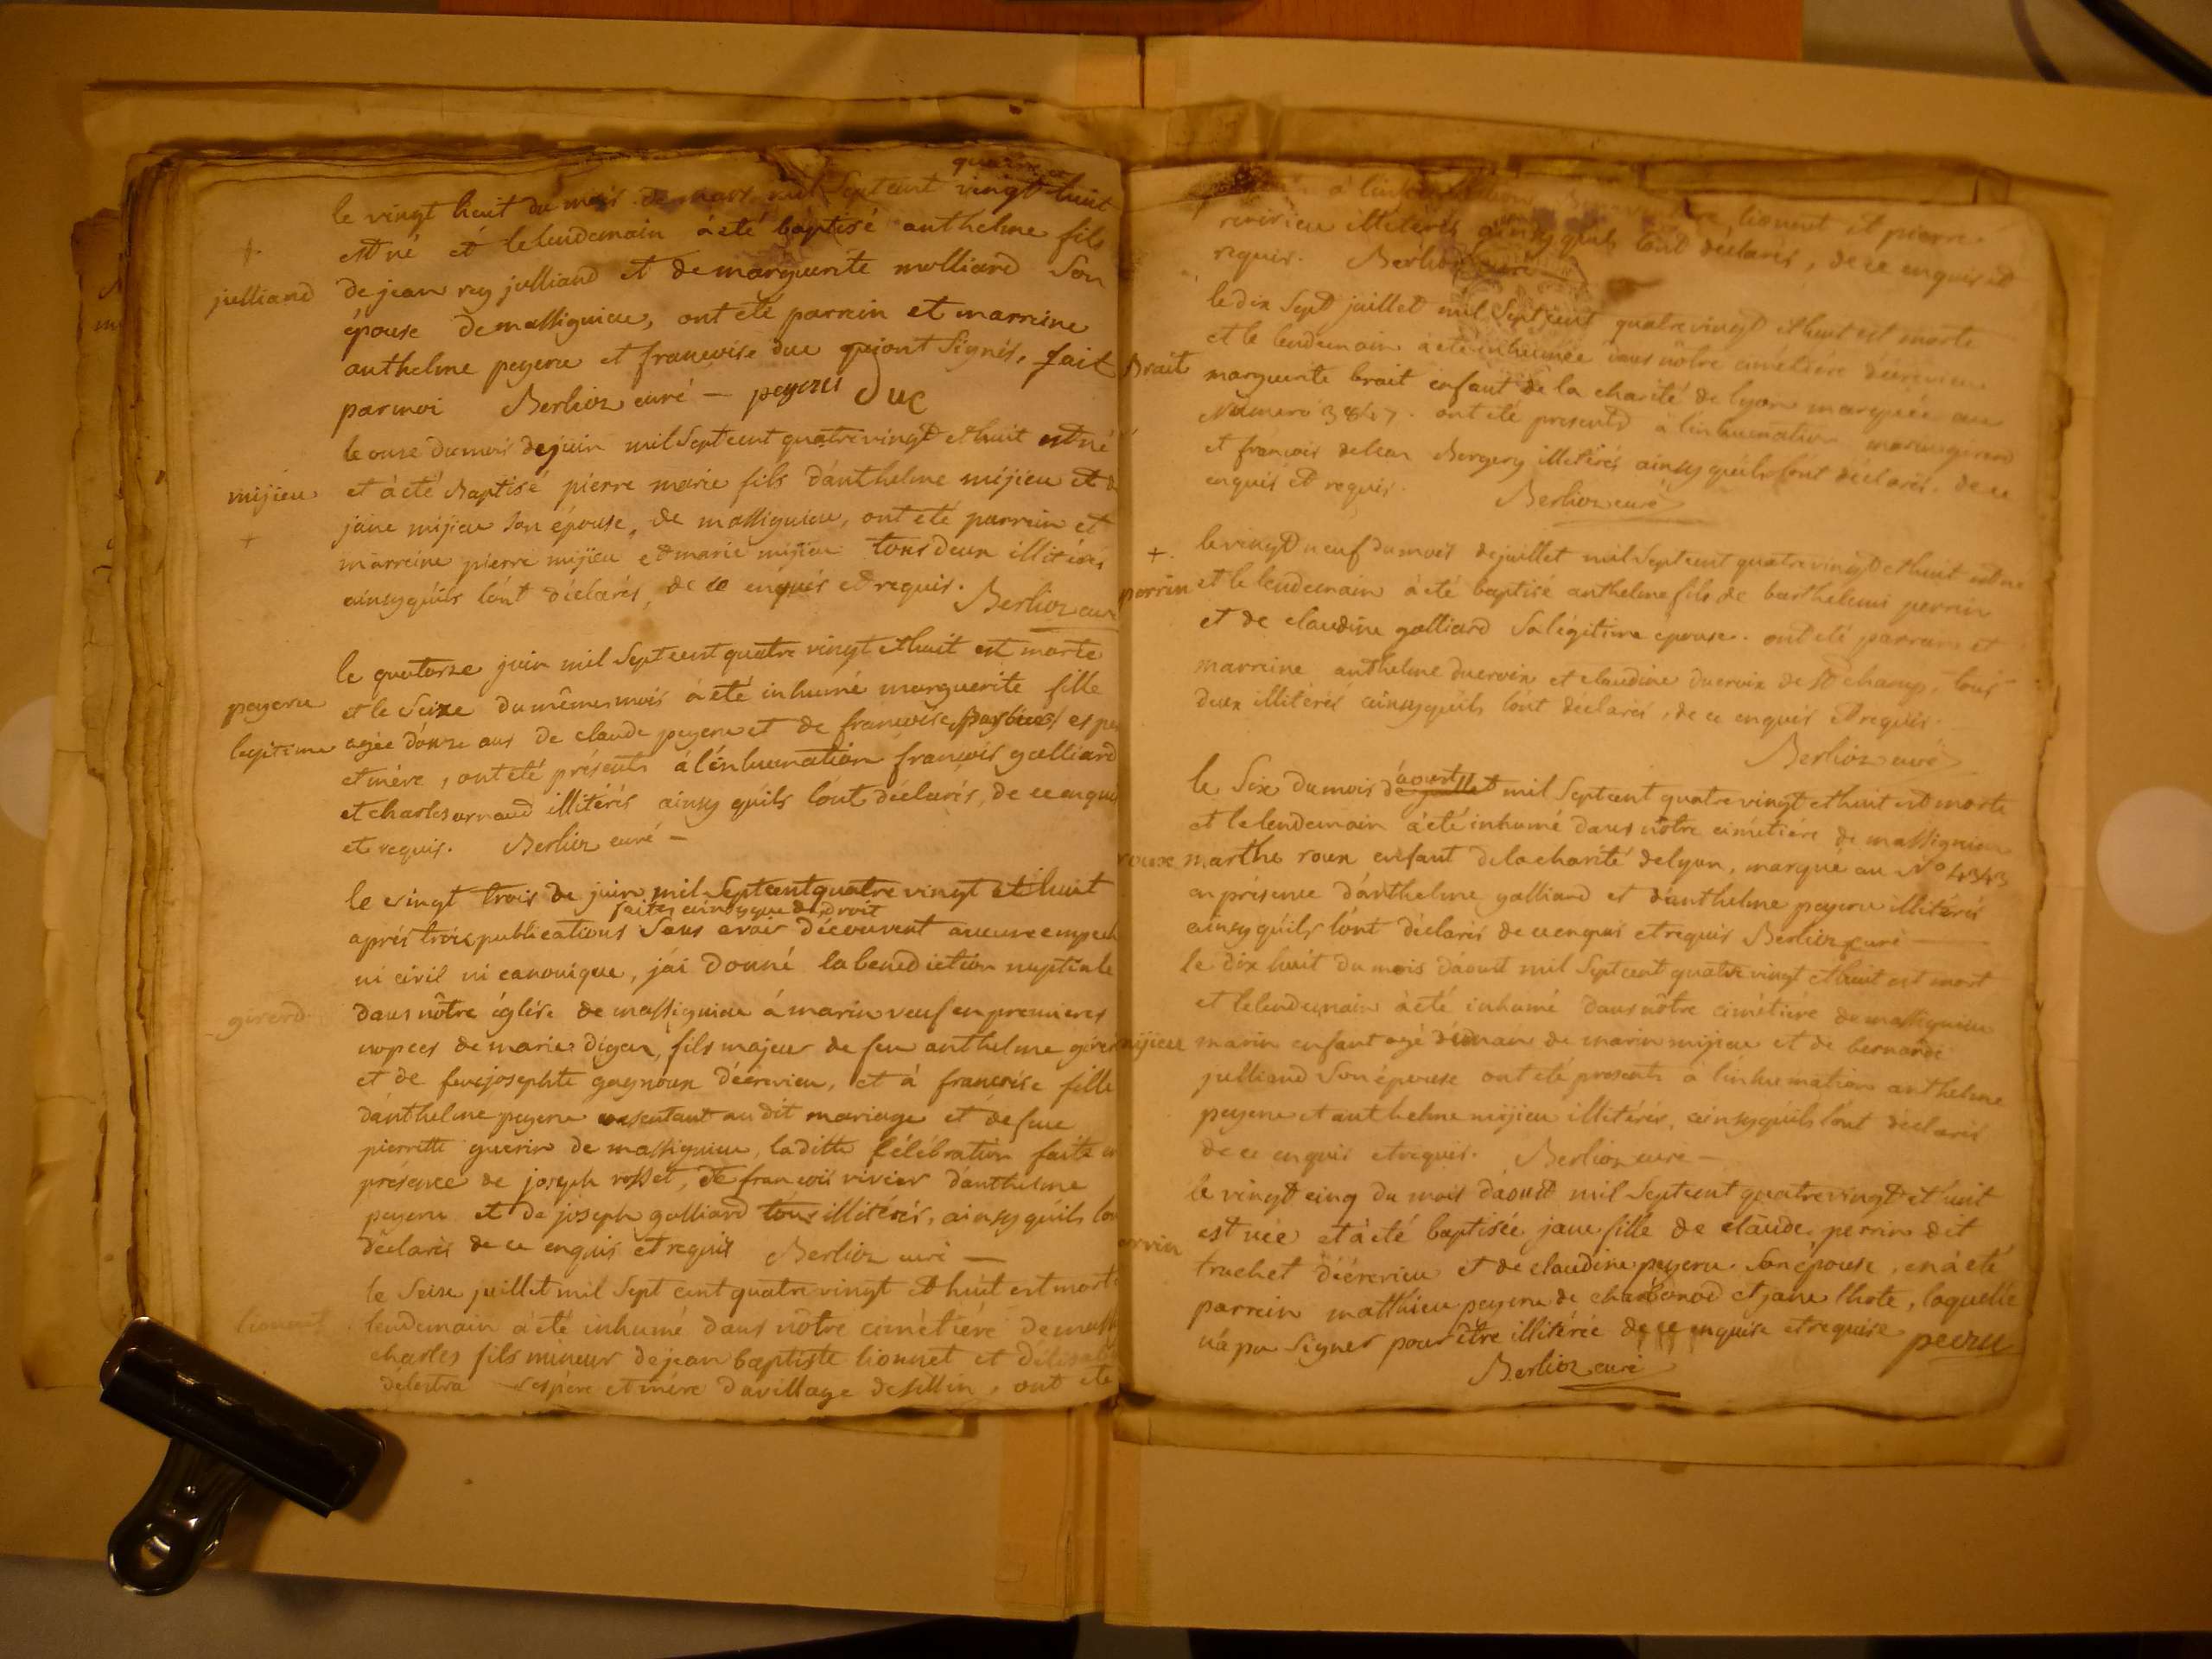 quatre
le vingt huit du mois de mars mil sept cent vingt huit
est né et le lendemain à eté baptisé anthelme fils
julliand
de jean rey julliand et de marguerite molliard son
épouse de massignieu, ont eté parrein et marreine
anthelme peyeru et francoise duc qui ont signés, fait
par moi Berlioz curé — peyzeu Duc
le onze du mois de juin mil sept cent quatre vingt et huit est né
mijieu
et à été Baptisé pierre marie fils d'anthelme mijieu et
jane mijieu son épouse, de massignieu, ont été parrein et
marreine pierre mijieu et marie mijieu tous deux illitérés
ainsy quils lont déclarés, de ce enquis et requis. Berlioz curé
le quatorze juin mil sept cent quatre vingt et huit est morte
peyeru
et le seize du même mois à été inhumé marguerite fille
legitime
agée donze ans de claude peyeru et de francoise
et mère, ont été présents à l'inhumation françois galliard
et charles arnaud illitérés ainsy quils lont déclarés, de ce enquis
et requis. Berlioz curé —
le vingt trois de juin mil sept cent quatre vingt et huit
faites ainsy que de droit
aprés trois publications sans avoir découvert aucun empech
ni civil ni canonique, j'ai donné la benediction nuptiale
girerd
dans nôtre église de massignieu à marin veuf en premieres
nopces de marie digeu, fils majeur de feu anthelme
et de feue josephte gagnoux décrivieu, et à francoise fille
d'anthelme peyeru au dit mariage et de feue
pierrette guérin de massignieu, la ditte célébration faite
présence de joseph rosset, de francois vivier d'anthelme
peyeru et de joseph galliard tous illitérés, ainsy quils
déclarés de ce enquis et requis Berlioz curé —
le seize juillet mil sept cent quatre vingt et huit est mort
lionnet
lendemain à été inhumé dans nôtre cimétiére de
charles fils mineur de jean baptiste lionnet et
delestra ses père et mère du village de sillin, ont été
à l'inhumation lionnet et pierre
illitérés ainsy quils lont déclarés, de ce enquis et
requis. Berlioz curé
le dix sept juillet mil sept cent quatre vingt et huit est morte
et le lendemain à été inhumée dans nôtre cimétiére
Brait
marguerite brait enfant de la charité de lyon marquée au
Numero 3847. ont été presents à l'inhumation marin girerd
et françois Bergery illitérés ainsy quils lont déclarés, de ce
enquis et requis. Berlioz curé
le vingt neuf du mois de juillet mil sept cent quatre vingt et huit est né
perrin
et le lendemain à été baptisé anthelme fils de barthelemi perrin
et de claudine galliard sa légitime épouse. ont été parrain et
marreine anthelme ducroix et claudine ducroix de St champ, tous
deux illitérés ainsy quils lont déclarés, de ce enquis et requis.
Berlioz curé
aoust
le six du mois de juillet mil sept cent quatre vingt et huit est morte
et le lendemain à été inhumé dans nôtre cimétiére de massignieu
roux
marthe roux enfant de la charité de lyon, marqué au No 4343
en présence d'anthelme galliard et d'anthelme peyeru illitérés
ainsy quils lont déclarés de ce enquis et requis Berlioz curé —
le dix huit du mois d'aoust mil sept cent quatre vingt et huit est mort
et le lendemain à été inhumé dans nôtre cimétiére de massignieu
mijieu
marin enfant agé d'un an de marin mijieu et de bernarde
julliand son épouse ont été presents à l'inhumation anthelme
peyeru et anthelme mijieu illitérés, ainsy quils lont déclarés
de ce enquis et requis. Berlioz curé —
le vingt cinq du mois d'aoust mil sept cent quatre vingt et huit
perrin
est née et à été baptisée jane fille de claude perrin dit
truchet décrivieu et de claudine peyeru son épouse, en à été
parrein matthieu peyeru de charbonod et jane lhote, laquelle
n'a pu signer pour être illitérée de ce enquise et requise peeru
Berlioz curé